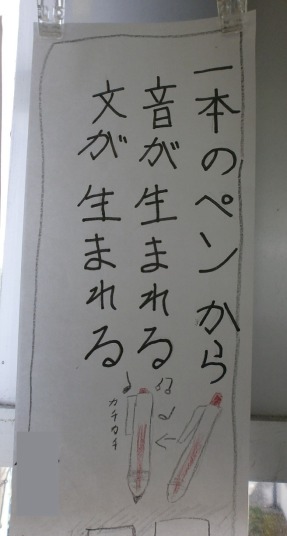 一本のペンから
音が生まれる
文が生まれる
カチカチ